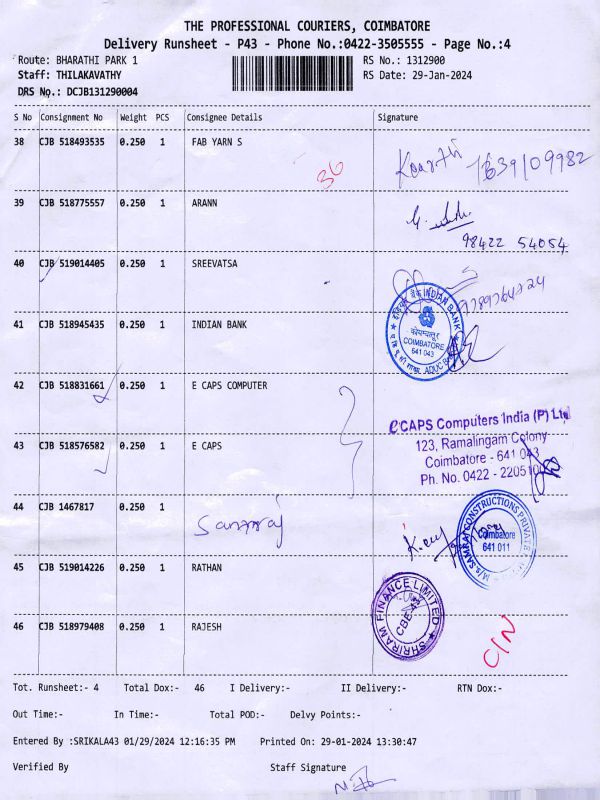 THE PROFESSIONAL COURIERS, COIMBATORE
Delivery Runsheet - P43 - Phone No.:0422-3505555 - Page No.:4
Route: BHARATHI PARK 1 RS No.: 1312900
Staff: THILAKAVATHY RS Date: 29-Jan-2024
DRS No.: DCJB131290004
S No Consignment No Weight PCS Consignee Details Signature
38 CJB 518493535 0.250 1 FAB YARN S
39 CJB 518775557 0.250 1 ARANN
98422 54054
40 CJB 519014405 0.250 1 SREEVATSA
INDIAN BANK
कोयम्बत्तूर
COIMBATORE
641 043
41 CJB 518945435 0.250 1 INDIAN BANK
42 CJB 518831661 0.250 1 E CAPS COMPUTER
eCAPS Computers India (P) Ltd
123, Ramalingam Colony
Coimbatore - 641 043
Ph. No. 0422 -
43 CJB 518576582 0.250 1 E CAPS
44 CJB 1467817 0.250 1
M/s. SAMRAT CONSTRUCTIONS PRIVATE
Coimbatore
641 011
45 CJB 519014226 0.250 1 RATHAN
SHRIRAM FINANCE LIMITED
46 CJB 518979408 0.250 1 RAJESH
C/N
Tot. Runsheet:- 4 Total Dox:- 46 I Delivery:- II Delivery:- RTN Dox:-
Out Time:- In Time:- Total POD:- Delvy Points:-
Entered By :SRIKALA43 01/29/2024 12:16:35 PM Printed On: 29-01-2024 13:30:47
Verified By Staff Signature